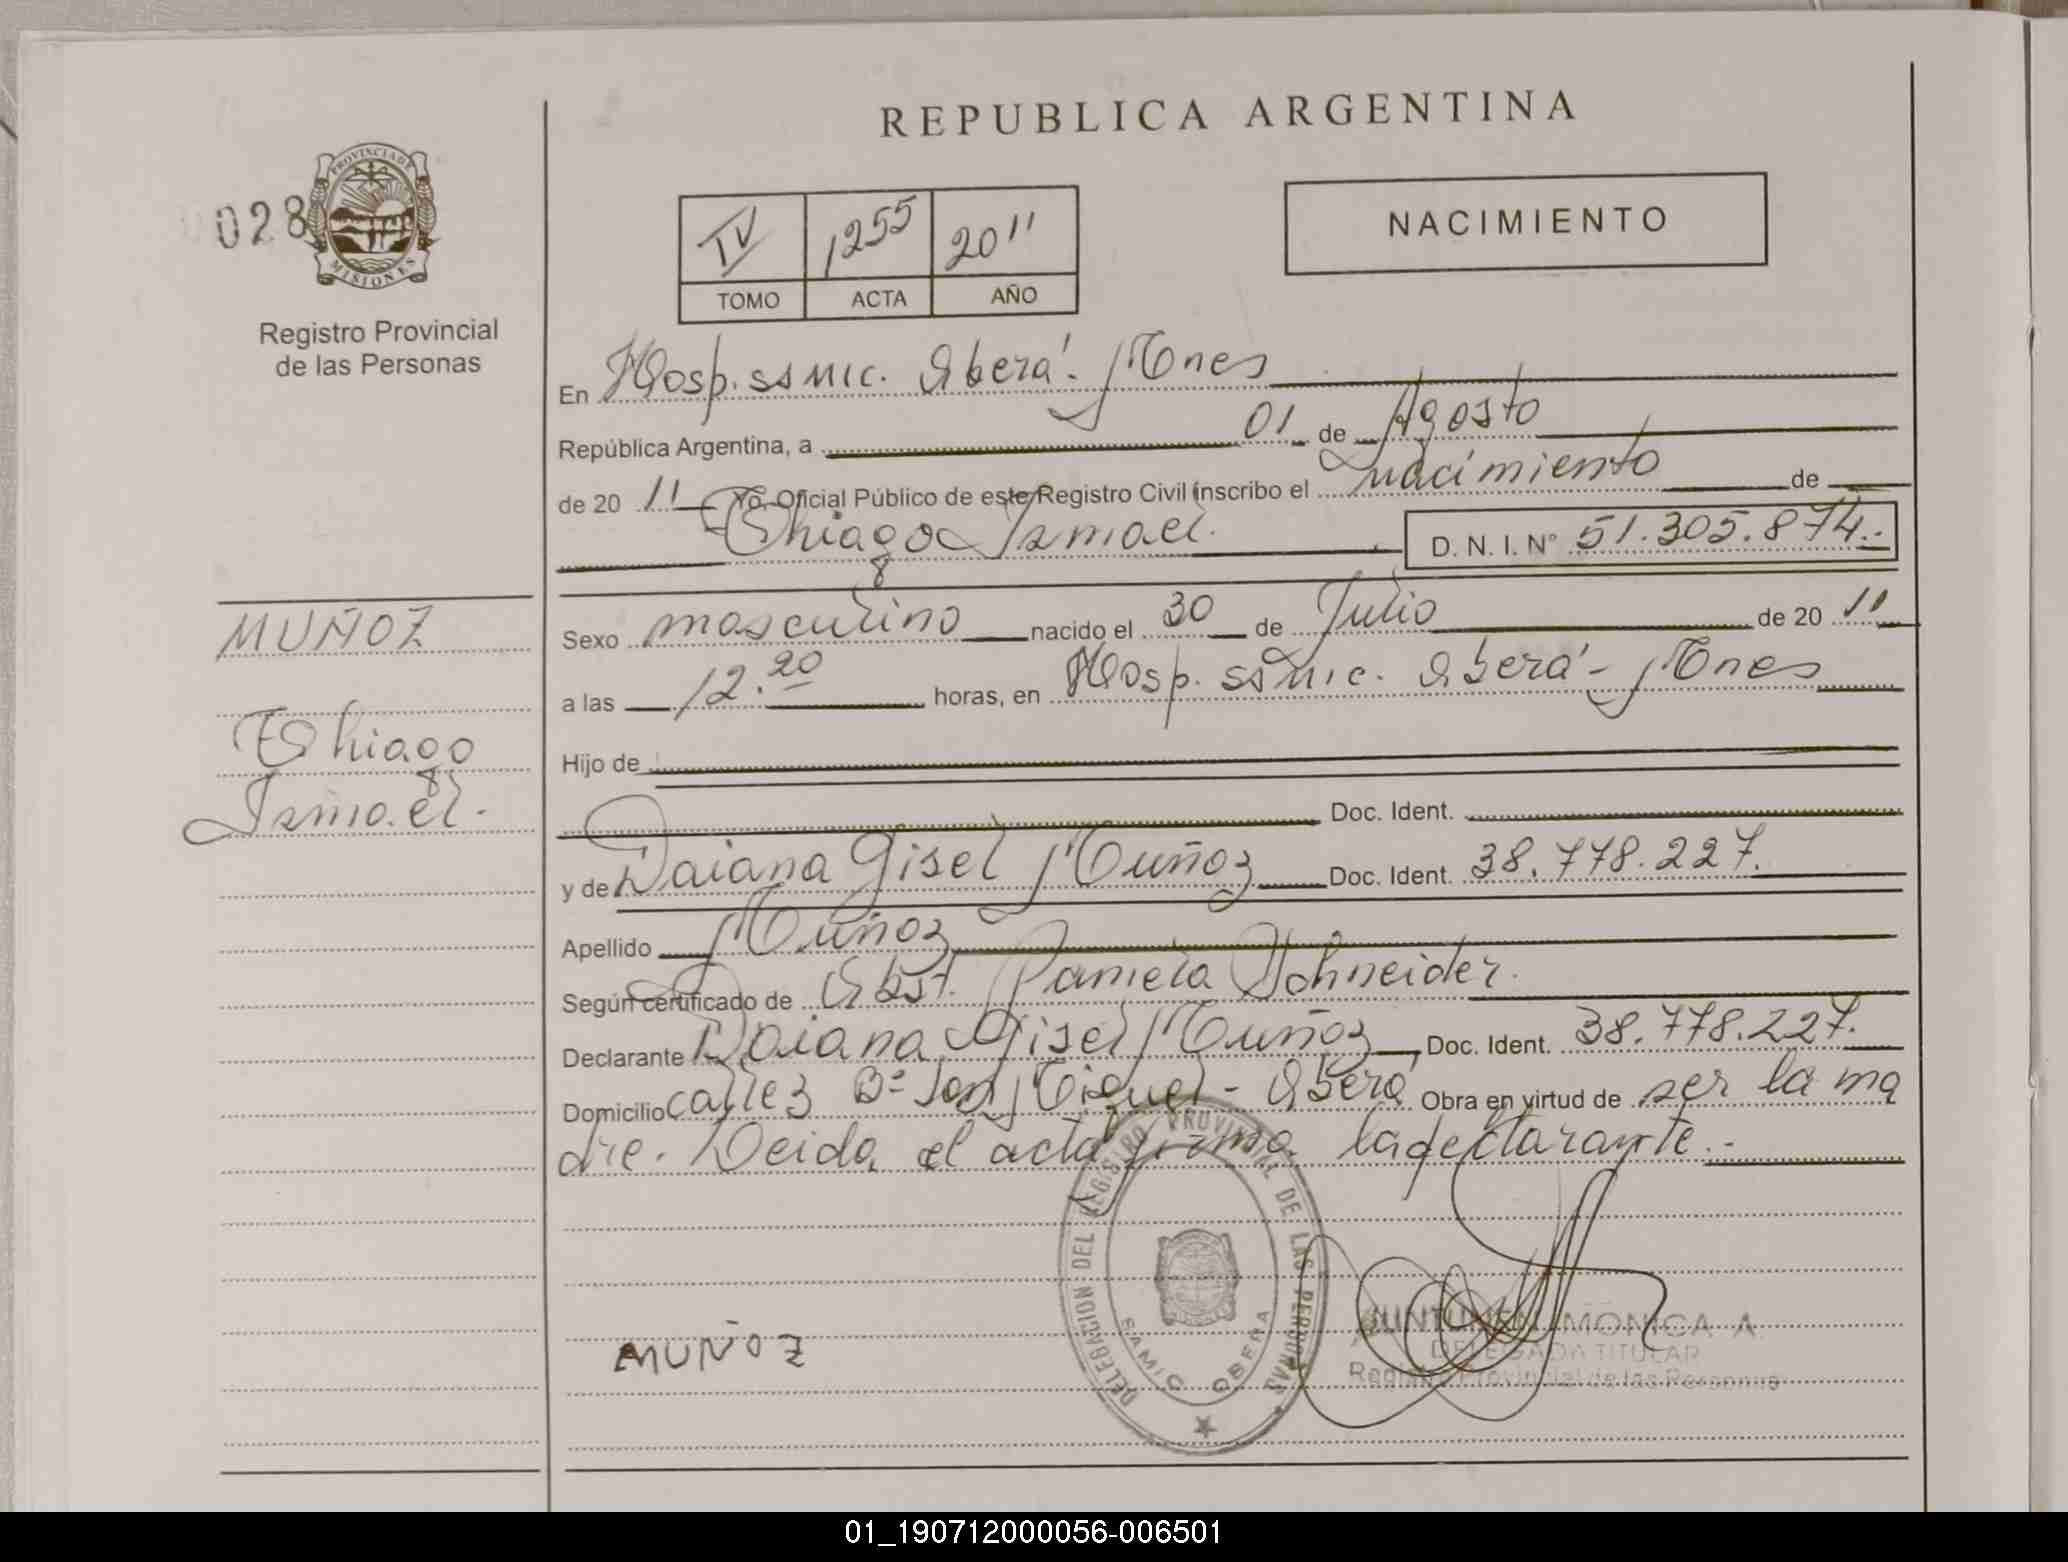 REPUBLICA ARGENTINA
028
PROVINCIA DE
MISIONES
Registro Provincial
de las Personas
IV 1255 2011
TOMO ACTA AÑO
NACIMIENTO
En Hosp. SAMIC. Oberá. Mnes
República Argentina, a 01 de Agosto
de 20 11 Yo, Oficial Público de este Registro Civil inscribo el nacimiento de
Thiago Ismael. D. N. I. Nº 51.305.874.-
MUÑOZ
Thiago
Ismael.
Sexo masculino nacido el 30 de Julio de 20 11
a las 12.20 horas, en Hosp. SAMIC. Oberá - Mnes
Hijo de
Doc. Ident.
y de Daiana Gisel Muñoz Doc. Ident. 38.778.227.
Apellido Muñoz
Según certificado de Obst. Pamela Schneider.
Declarante Daiana Gisel Muñoz Doc. Ident. 38.778.227.
Domicilio calle 3 Bº San Miguel - Oberá Obra en virtud de ser la ma
dre. Leida el acta firma la declarante.-
DELEGACION DEL REGISTRO PROVINCIAL DE LAS PERSONAS
SAMIC OBERA
MUÑOZ
MONICA A
DELEGADA TITULAR
Registro Provincial de las Personas
01_190712000056-006501